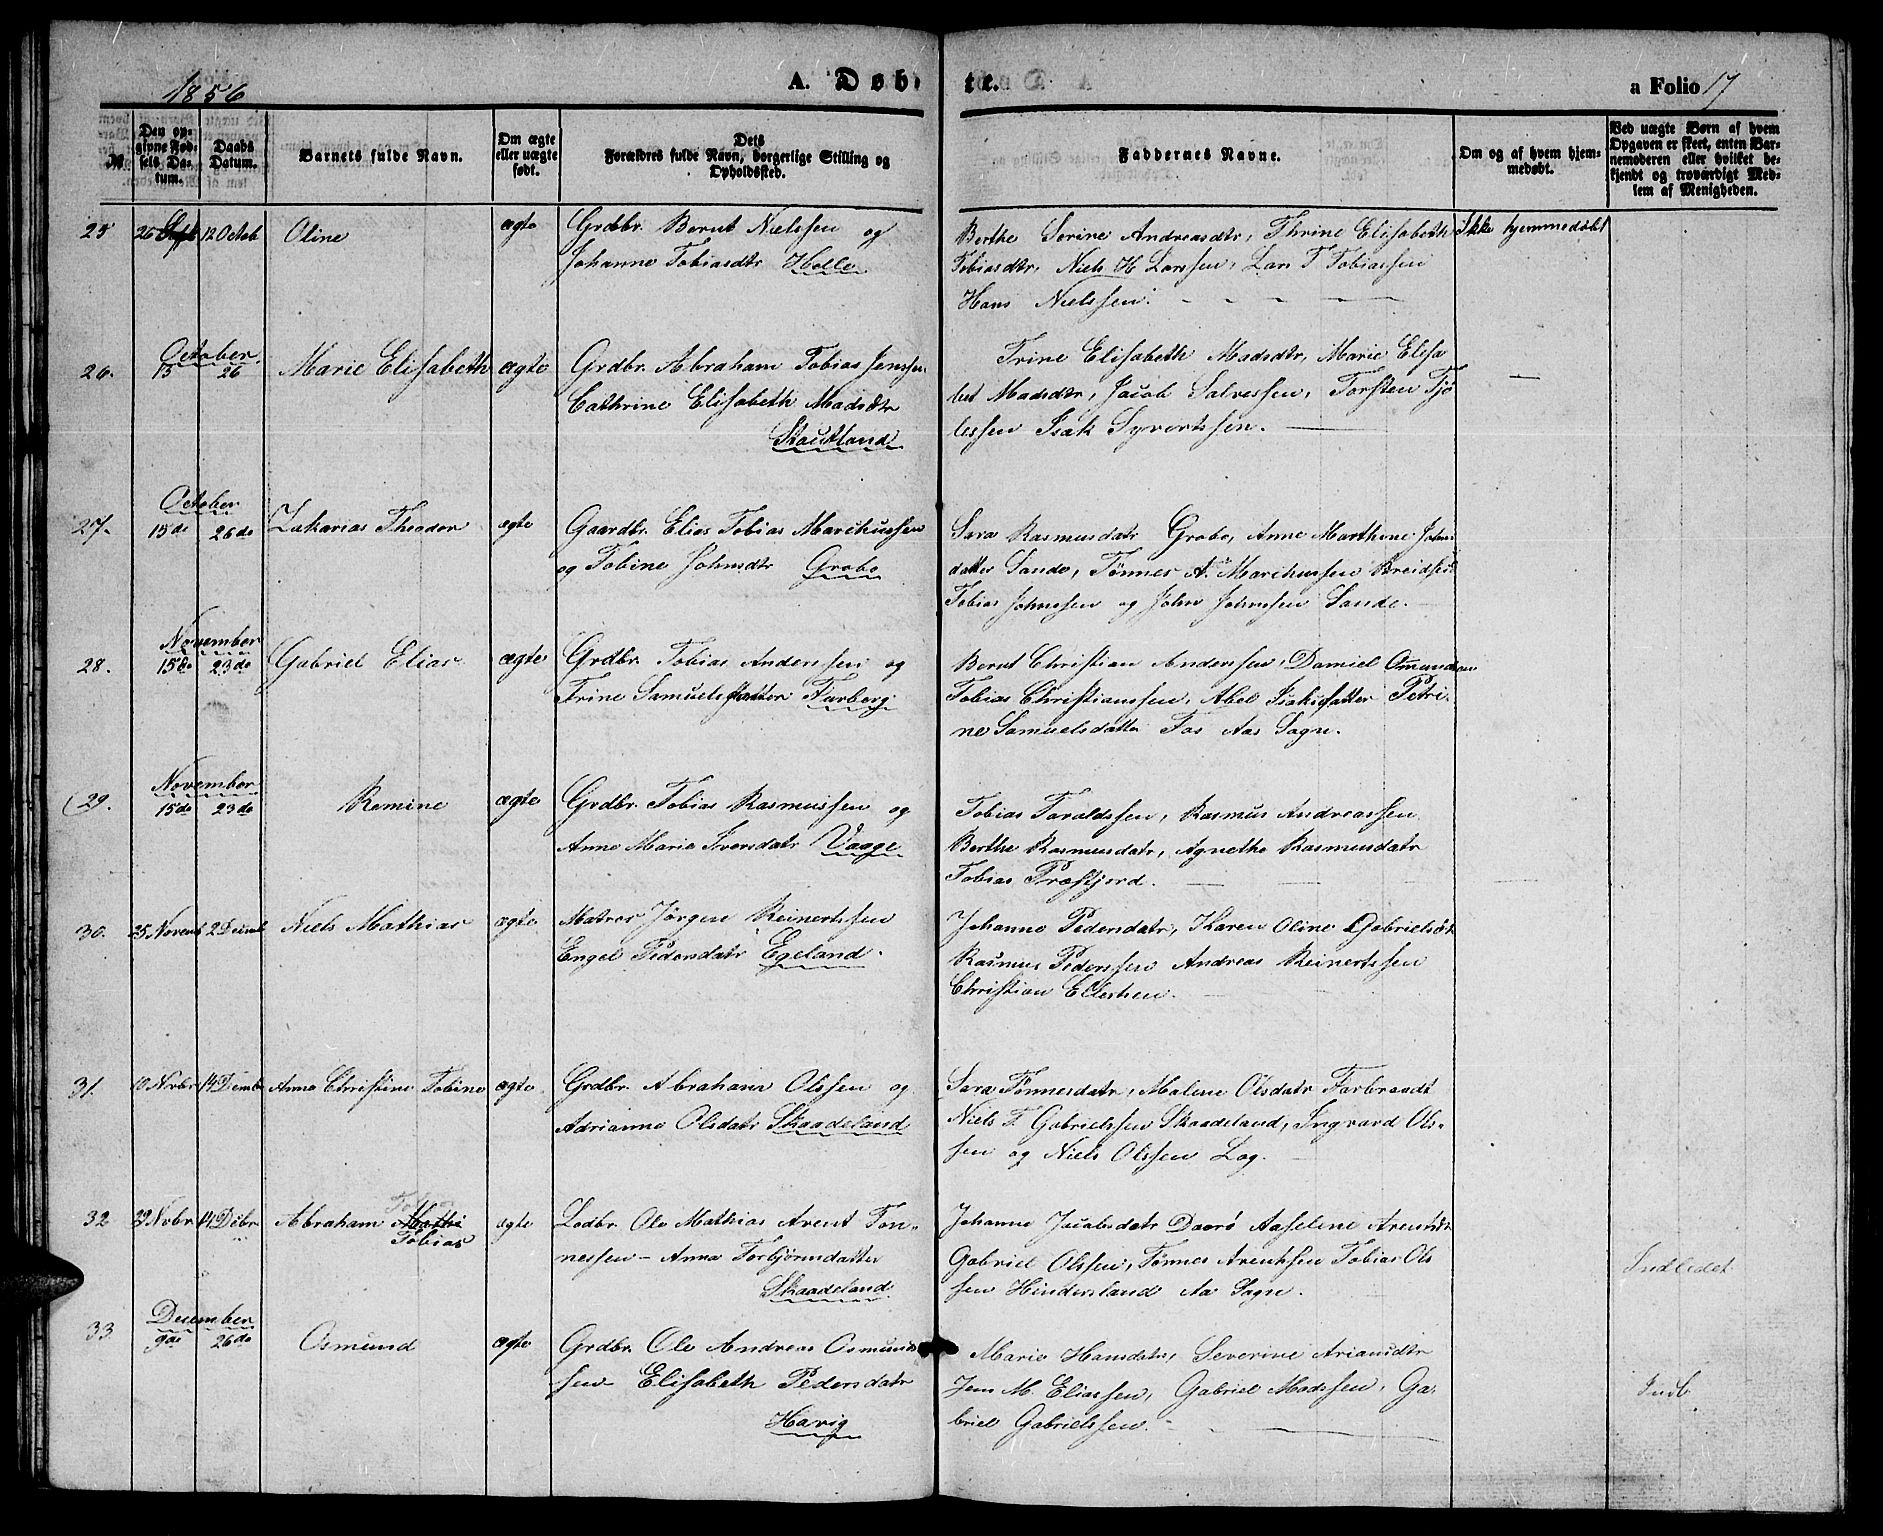 1856
A. Døbte.
a Folio 17
No.
Den opgivne Fødsels Datum.
Daabs Datum.
Barnets fulde Navn.
Om ægte eller uægte født.
Dets Forældres fulde Navn, borgerlige Stilling og Opholdssted.
Faddernes Navne.
Om og af hvem hjemmedøbt.
Ved uægte Børn af hvem Opgaven er skeet, enten Barnemoderen eller hvilket bekjendt og troværdigt Medlem af Menigheden.
25 26 Sept 12 Octob Oline ægte Grdbr. Bernt Nielssen og
Johanne Tobiasdtr Helle
Berthe Serine Andreasdtr, Thrine Elisabeth Ikke hjemmedøbt
Tobiasdtr, Niels H Larssen, Lars T Tobiassen
Hans Nielssen.
October
26. 15 26 Marie Elisabeth ægte Grdbr. Abraham Tobias Jenssen
Cathrine Elisabeth Madsdtr
Stautland
Trine Elisabeth Madsdtr, Marie Elisa
bet Madsdtr, Jacob Salvessen, Torsten Tjø
lessen Isak Syvertssen.
October
27. 15de 26de Zakarias Theodor ægte Gaardbr. Elias Tobias Marchussen
og Tobine Johnsdtr Grobo
Sara Rasmusdatr Grobo, Anne Marthine Johns
datter Sande, Tønnes A. Marchussen
Tobias Johnssen og John Johnssen Sande.
November
28. 15de 23de Gabriel Elias ægte Grdbr. Tobias Anderssen og
Trine Samuelsdatter Farberg
Bernt Christian Anderssen, Daniel Omundsen
Tobias Christianssen, Abel Isaksdatter Petri-
ne Samuelsdatter Fos Aas Sogn.
November
29. 15de 23de Remine ægte Grdbr. Tobias Rasmussen og
Anne Marie Iversdatr Vaage
Tobias Taraldssen, Rasmus Andreassen
Berthe Rasmusdatr, Agnethe Rasmusdatr
Tobias Præstjord.
30. 25 Novemb 2 Decmb Niels Mathias ægte Matros Jørgen Reinertssen
Engel Pedersdatr Egeland.
Johanne Pedersdatr, Karen Oline Gabrielsdt
Rasmus Pederssen Andreas Reinertssen
Christian Ellertsen.
31. 10 Novbr 14 Decmb Anne Christine Tobine ægte Grdbr. Abraham Olssen og
Adrianne Olsdatr Skaadeland
Sara Tønnesdatr, Malene Olsdatr Farbrandt
Niels T. Gabrielssen Skaadeland, Ingvard Ols-
sen og Niels Olssen Log.
32 29 Novbr 14 Decbr Abraham Mathi Tobias ægte Lodbr. Ole Mathias Arent Tøn-
nessen - Anna Torbjørnsdatter
Skaadeland
Johanne Jacobsdatr Daorø Aaseline Arentsdt
Gabriel Olssen, Tønnes Arentssen Tobias Ols
sen Hindersland Aa Sogn.
Indledet
December
33 9de 26de Osmund ægte Grdbr. Ole Andreas Osmund
sen Elisabeth Pedersdatr
Havig
Marie Hansdatr, Severine Ariansdtr
Jens M. Eliassen, Gabriel Madssen, Ga-
briel Gabrielssen.
Indl